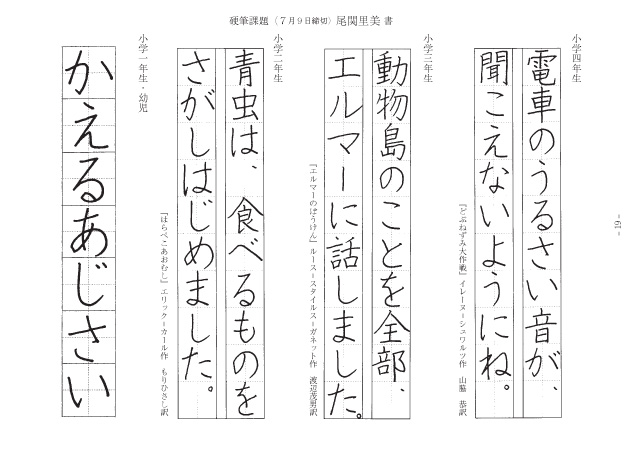 硬筆課題（７月９日締切）尾関里美 書
小学四年生
電車のうるさい音が、
聞こえないようにね。
『どぶねずみ大作戦』イレーヌ＝シュワルツ作　山脇　恭訳
小学三年生
動物島のことを全部、
エルマーに話しました。
『エルマーのぼうけん』ルース＝スタイルス＝ガネット作　渡辺茂男訳
小学二年生
青虫は、食べるものを
さがしはじめました。
『はらぺこあおむし』エリック＝カール作　もりひさし訳
小学一年生・幼児
かえるあじさい
- 19 -